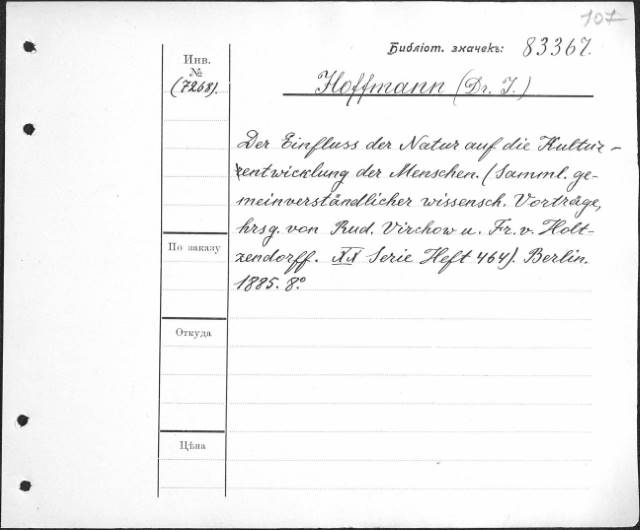 107
Библіот. значекъ: 83367.
Инв.
№
(7268).
Hoffmann (Dr. J.)
Der Einfluss der Natur auf die Kultur-
entwicklung der Menschen. (Samml. ge-
meinverständlicher wissensch. Vorträge,
hrsg. von Rud. Virchow u. Fr. v. Holt-
zendorff. XX Serie Heft 464). Berlin.
1885. 8°
По заказу
Откуда
Цѣна